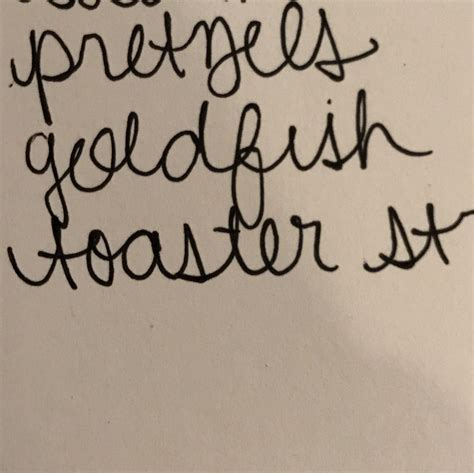 pretzels
goldfish
toaster st